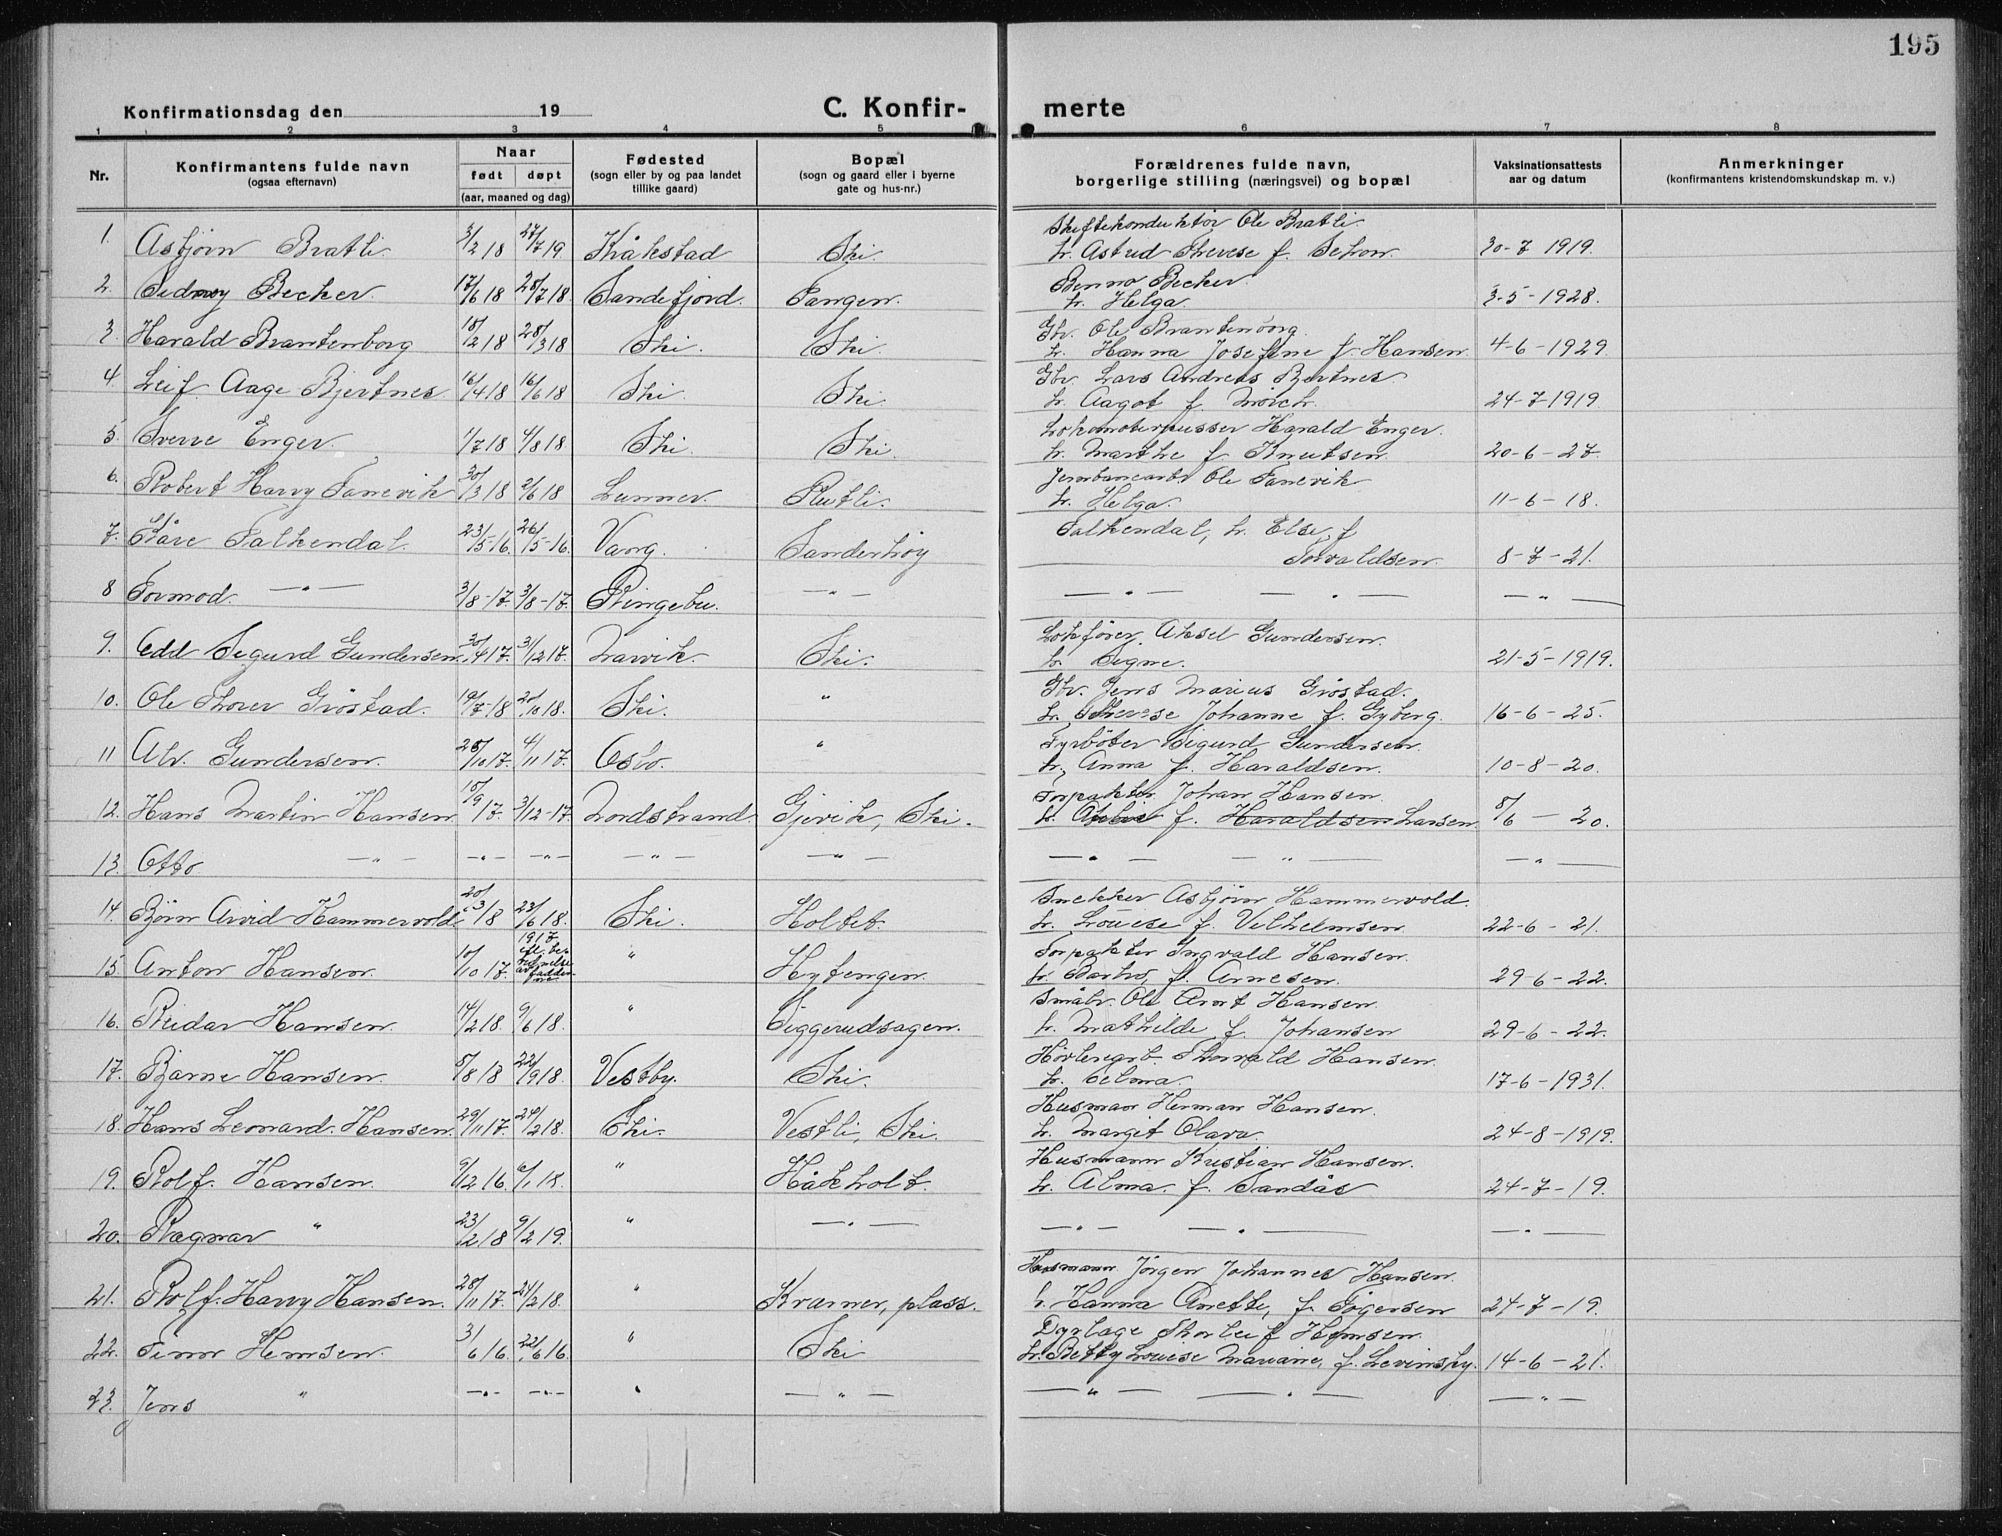 195
Konfirmationsdag den 19
C. Konfir-
merte
1 2 3 4 5 6 7 8
Nr. Konfirmantens fulde navn (ogsaa efternavn) Naar født døpt (aar, maaned og dag) Fødested (sogn eller by og paa landet tillike gaard) Bopæl (sogn og gaard eller i byerne gate og hus-nr.) Forældrenes fulde navn, borgerlige stilling (næringsvei) og bopæl Vaksinationsattests aar og datum Anmerkninger (konfirmantens kristendomskundskap m. v.)
Skiftekonduktør Ole Bratli.
1. Asbjørn Bratli 3/2 18 27/7 19 Kråkstad Ski. h. Astrid Therese f. 30-7 1919.
Benno Becker.
2. Sidney Becker. 17/6 18 28/7 18 Sandefjord. Tangen. h. Helga. 3-5-1928.
Gbr. Ole Brantenborg.
3. Harald Brantenborg 18/2 18 28/3 18 Ski. Ski. h. Hanna Josefine f. Hansen. 4-6-1929
Gbr. Lars Andreas Bjertnes
4. Leif Aage Bjertnes 16/4 18 16/6 18 Ski. Ski. h. Aagot f. Mørch. 24-7-1919
Lokomotivpusser Harald Enger.
5. Sverre Enger. 1/7 18 4/8 18 Ski. Ski. h. Marthe f. Knutsen. 20-6-27.
Jernbanearb. Ole Fanevik
6. Robert Harry Fanevik 30/3 18 2/6 18 Lunner. Rutli. h. Helga. 11-6-18.
Falkendal, h. Else, f
7. Kåre Falkendal. 23/5-16. 26/5-16. Vang. Sanderhøy Torvaldsen. 8-7-21.
8 Tormod. —"— 3/8-17. 3/8-17. Ringebu. —"— —"— —"— —"—
Lokfører Aksel Gundersen.
9. Odd Sigurd Gundersen. 30/4 17. 31/12 17. Larvik. Ski. h. Signe. 21-5-1919.
Gbr. Jens Marius Grøstad.
10. Ole Thorer Grøstad. 19/7-18 20/10 18. Ski. " h. Therese Johanne f. Gyberg. 16-6-25.
Fyrbøter Sigurd Gundersen.
11 Alv. Gundersen. 28/10 17. 4/11 17. Oslo. " h. Anna f. Haraldsen. 10-8-20.
Forpakter Johan Hansen.
12. Hans Martin Hansen 18/9 17. 3/12-17. Nordstrand. Gjevik, Ski. h. f. Haraldsen Larsen. 8/6 - 20.
13. Otto —"— —"— —"— —"— —"— —"— —"— —"—
Snekker Asbjørn Hammervold.
14. Bjørn Arvid Hammervold. 20/3 18 23/6 18. Ski. Holtet. h. Louise f. Vilhelmsen. 22-6-21.
Forpakter Ingvald Hansen.
15. Anton Hansen. 10/10 17. 1917 " Hytengen. h. f. Arnesen. 29-6-22.
Småbr. Ole Arnt Hansen.
16. Reidar Hansen. 14/2 18. 9/6 18. " Siggerudsagen. h. Mathilde f. Johansen 29-6-22.
Høvleriarb. Thorvald Hansen.
17. Bjarne Hansen. 8/8 18 22/9 18. Vestby. Ski. h. Selma. 17-6-1931.
Husmann Herman Hansen.
18. Hans Leonard. Hansen. 29/11 17. 24/2 18. Ski. Vestli, Ski. h. Margit Olava. 24-8-1919.
Husmann Kristian Hansen.
19. Rolf. Hansen. 9/12 16 6/1 18. " Håkholt. h. Alma. f. Sandås 24-7-19.
20. Ragnar " 23/12 18 9/2 19. " —"— —"— —"— —"—
Husmann Jørgen Johannes Hansen.
21. Rolf. Harry Hansen. 28/11 17. 24/2 18. " Kramer, plass. h. Hanna Anette, f. Jøgersen 24-7-19.
Dyrlæge Thorleif Hemsen.
22. Finn Hemsen. 3/6 16. 22/6 16. " Ski h. Betty Louise Mariane, f. Levinsky. 14-6-21.
23. Jens " —"— —"— " —"— —"— —"— —"—